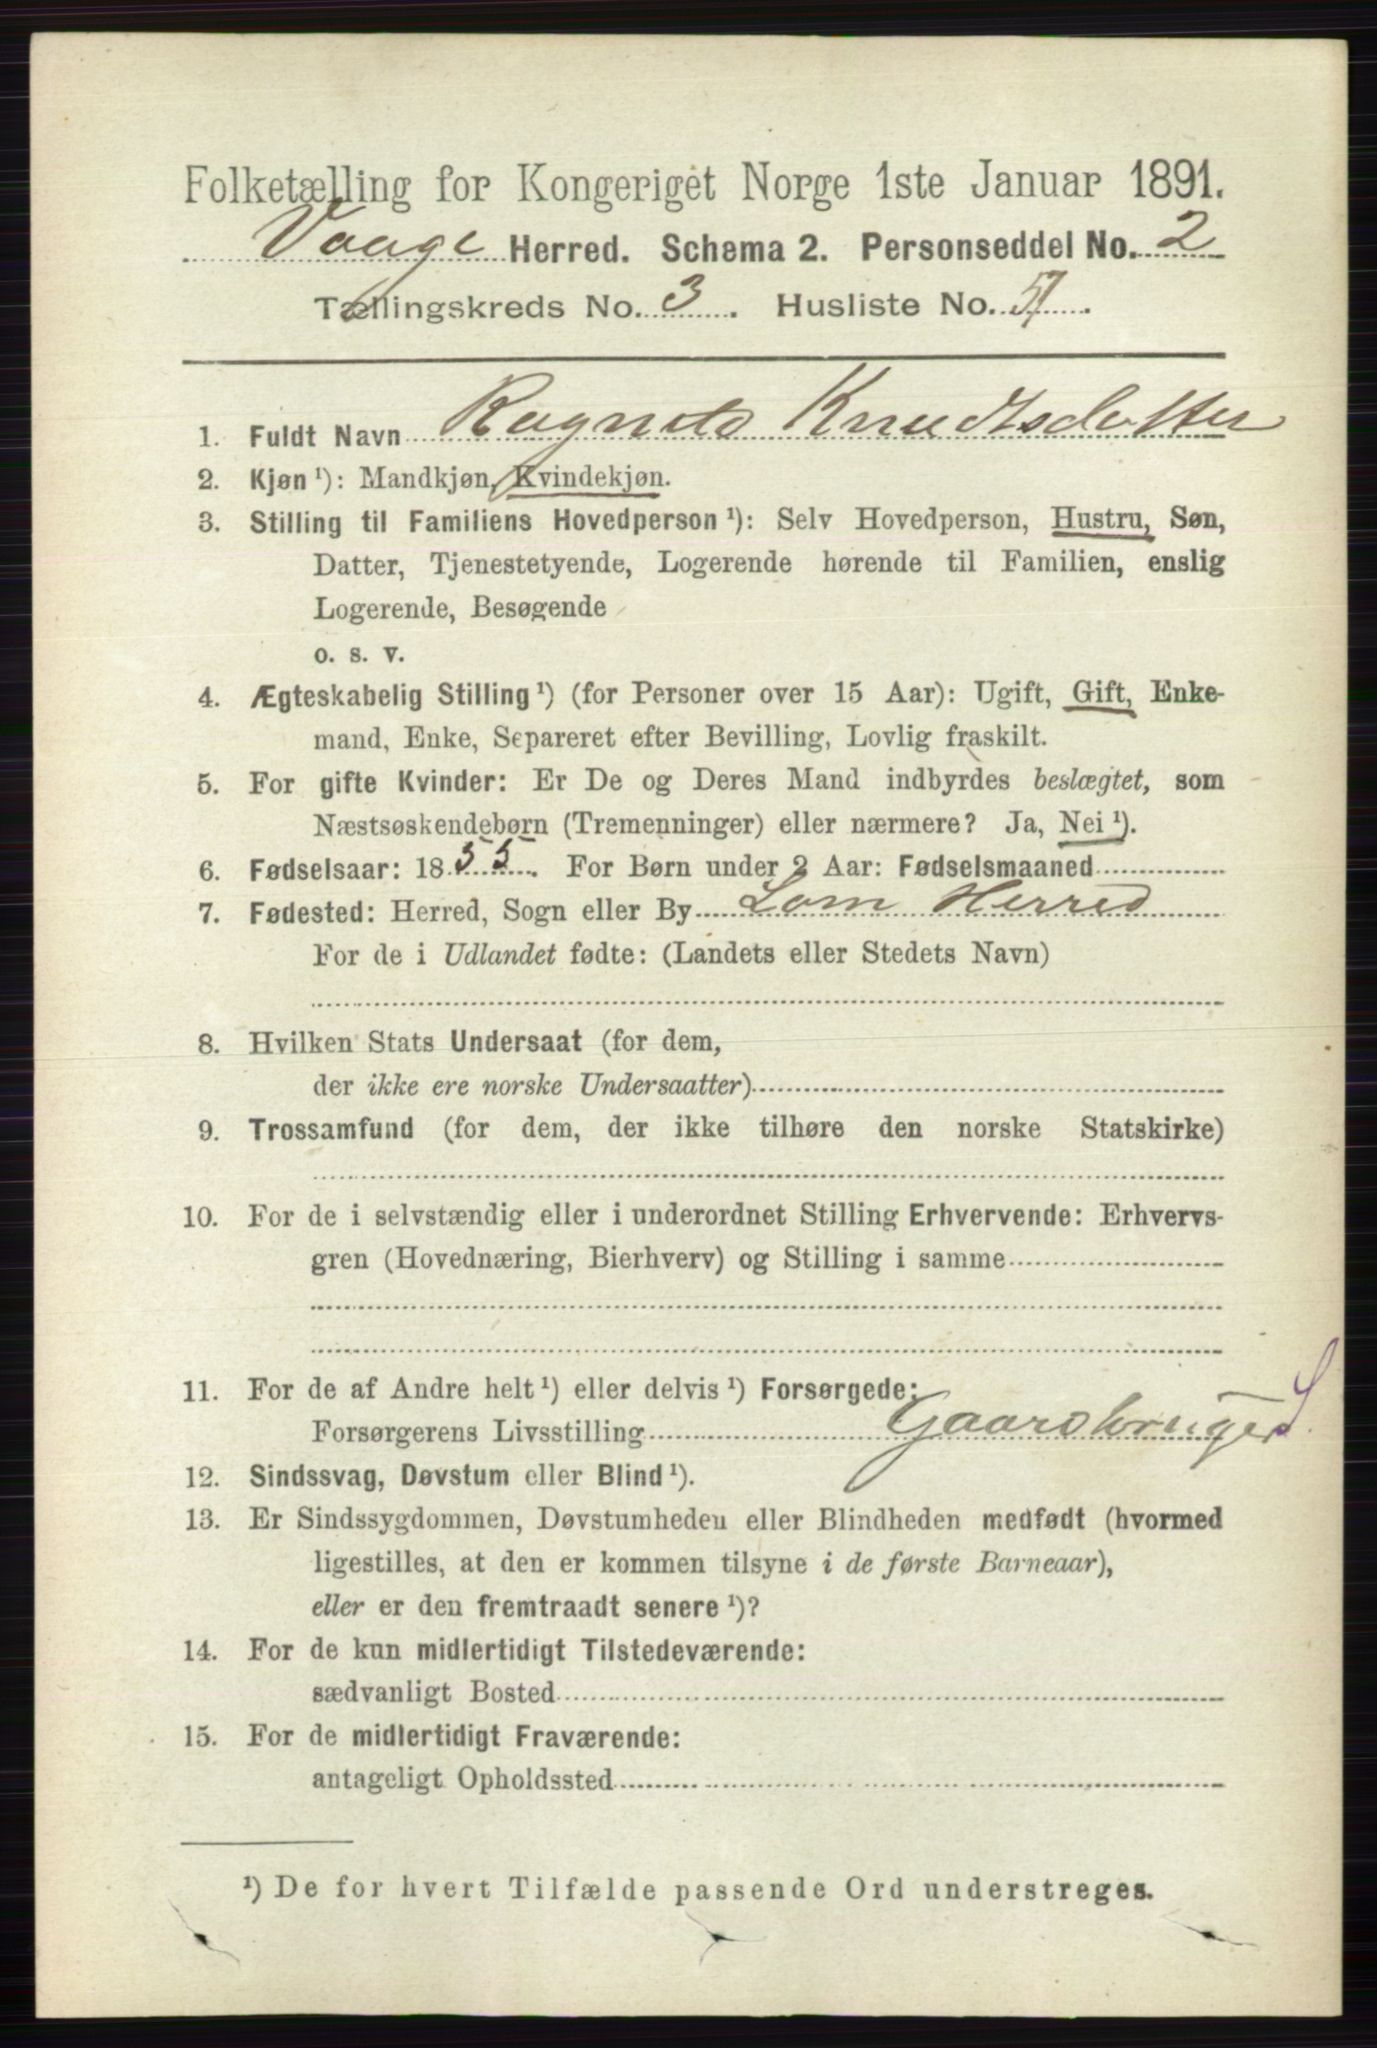 Folketælling for Kongeriget Norge 1ste Januar 1891.
Vaage Herred. Schema 2. Personseddel No. 2
Tællingskreds No. 3. Husliste No. 57.
1. Fuldt Navn Knudtsdatter
2. Kjøn ¹): Mandkjøn, Kvindekjøn.
3. Stilling til Familiens Hovedperson ¹): Selv Hovedperson, Hustru, Søn,
Datter, Tjenestetyende, Logerende hørende til Familien, enslig
Logerende, Besøgende
o. s. v.
4. Ægteskabelig Stilling ¹) (for Personer over 15 Aar): Ugift, Gift, Enke-
mand, Enke, Separeret efter Bevilling, Lovlig fraskilt.
5. For gifte Kvinder: Er De og Deres Mand indbyrdes beslægtet, som
Næstsøskendebørn (Tremenninger) eller nærmere? Ja, Nei ¹).
6. Fødselsaar: 1855. For Børn under 2 Aar: Fødselsmaaned
7. Fødested: Herred, Sogn eller By Lom Herred
For de i Udlandet fødte: (Landets eller Stedets Navn)
8. Hvilken Stats Undersaat (for dem,
der ikke ere norske Undersaatter)
9. Trossamfund (for dem, der ikke tilhøre den norske Statskirke)
10. For de i selvstændig eller i underordnet Stilling Erhvervende: Erhvervs-
gren (Hovednæring, Bierhverv) og Stilling i samme
11. For de af Andre helt ¹) eller delvis ¹) Forsørgede:
Forsørgerens Livsstilling Gaardbruger
12. Sindssvag, Døvstum eller Blind ¹).
13. Er Sindssygdommen, Døvstumheden eller Blindheden medfødt (hvormed
ligestilles, at den er kommen tilsyne i de første Barneaar),
eller er den fremtraadt senere ¹)?
14. For de kun midlertidigt Tilstedeværende:
sædvanligt Bosted
15. For de midlertidigt Fraværende:
antageligt Opholdssted
¹) De for hvert Tilfælde passende Ord understreges.